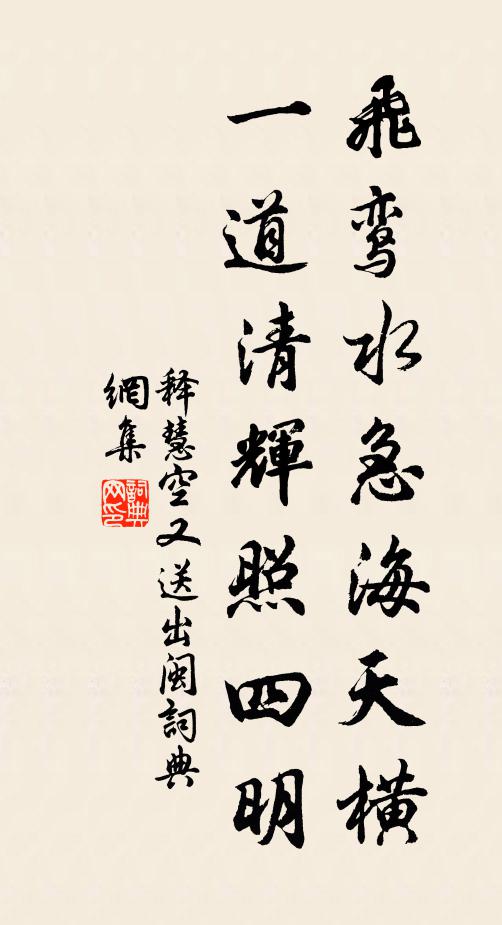 飛鸾水急海天橫
一道清輝照四明
释慧空又送出闽詞典
網集
詞典
网印